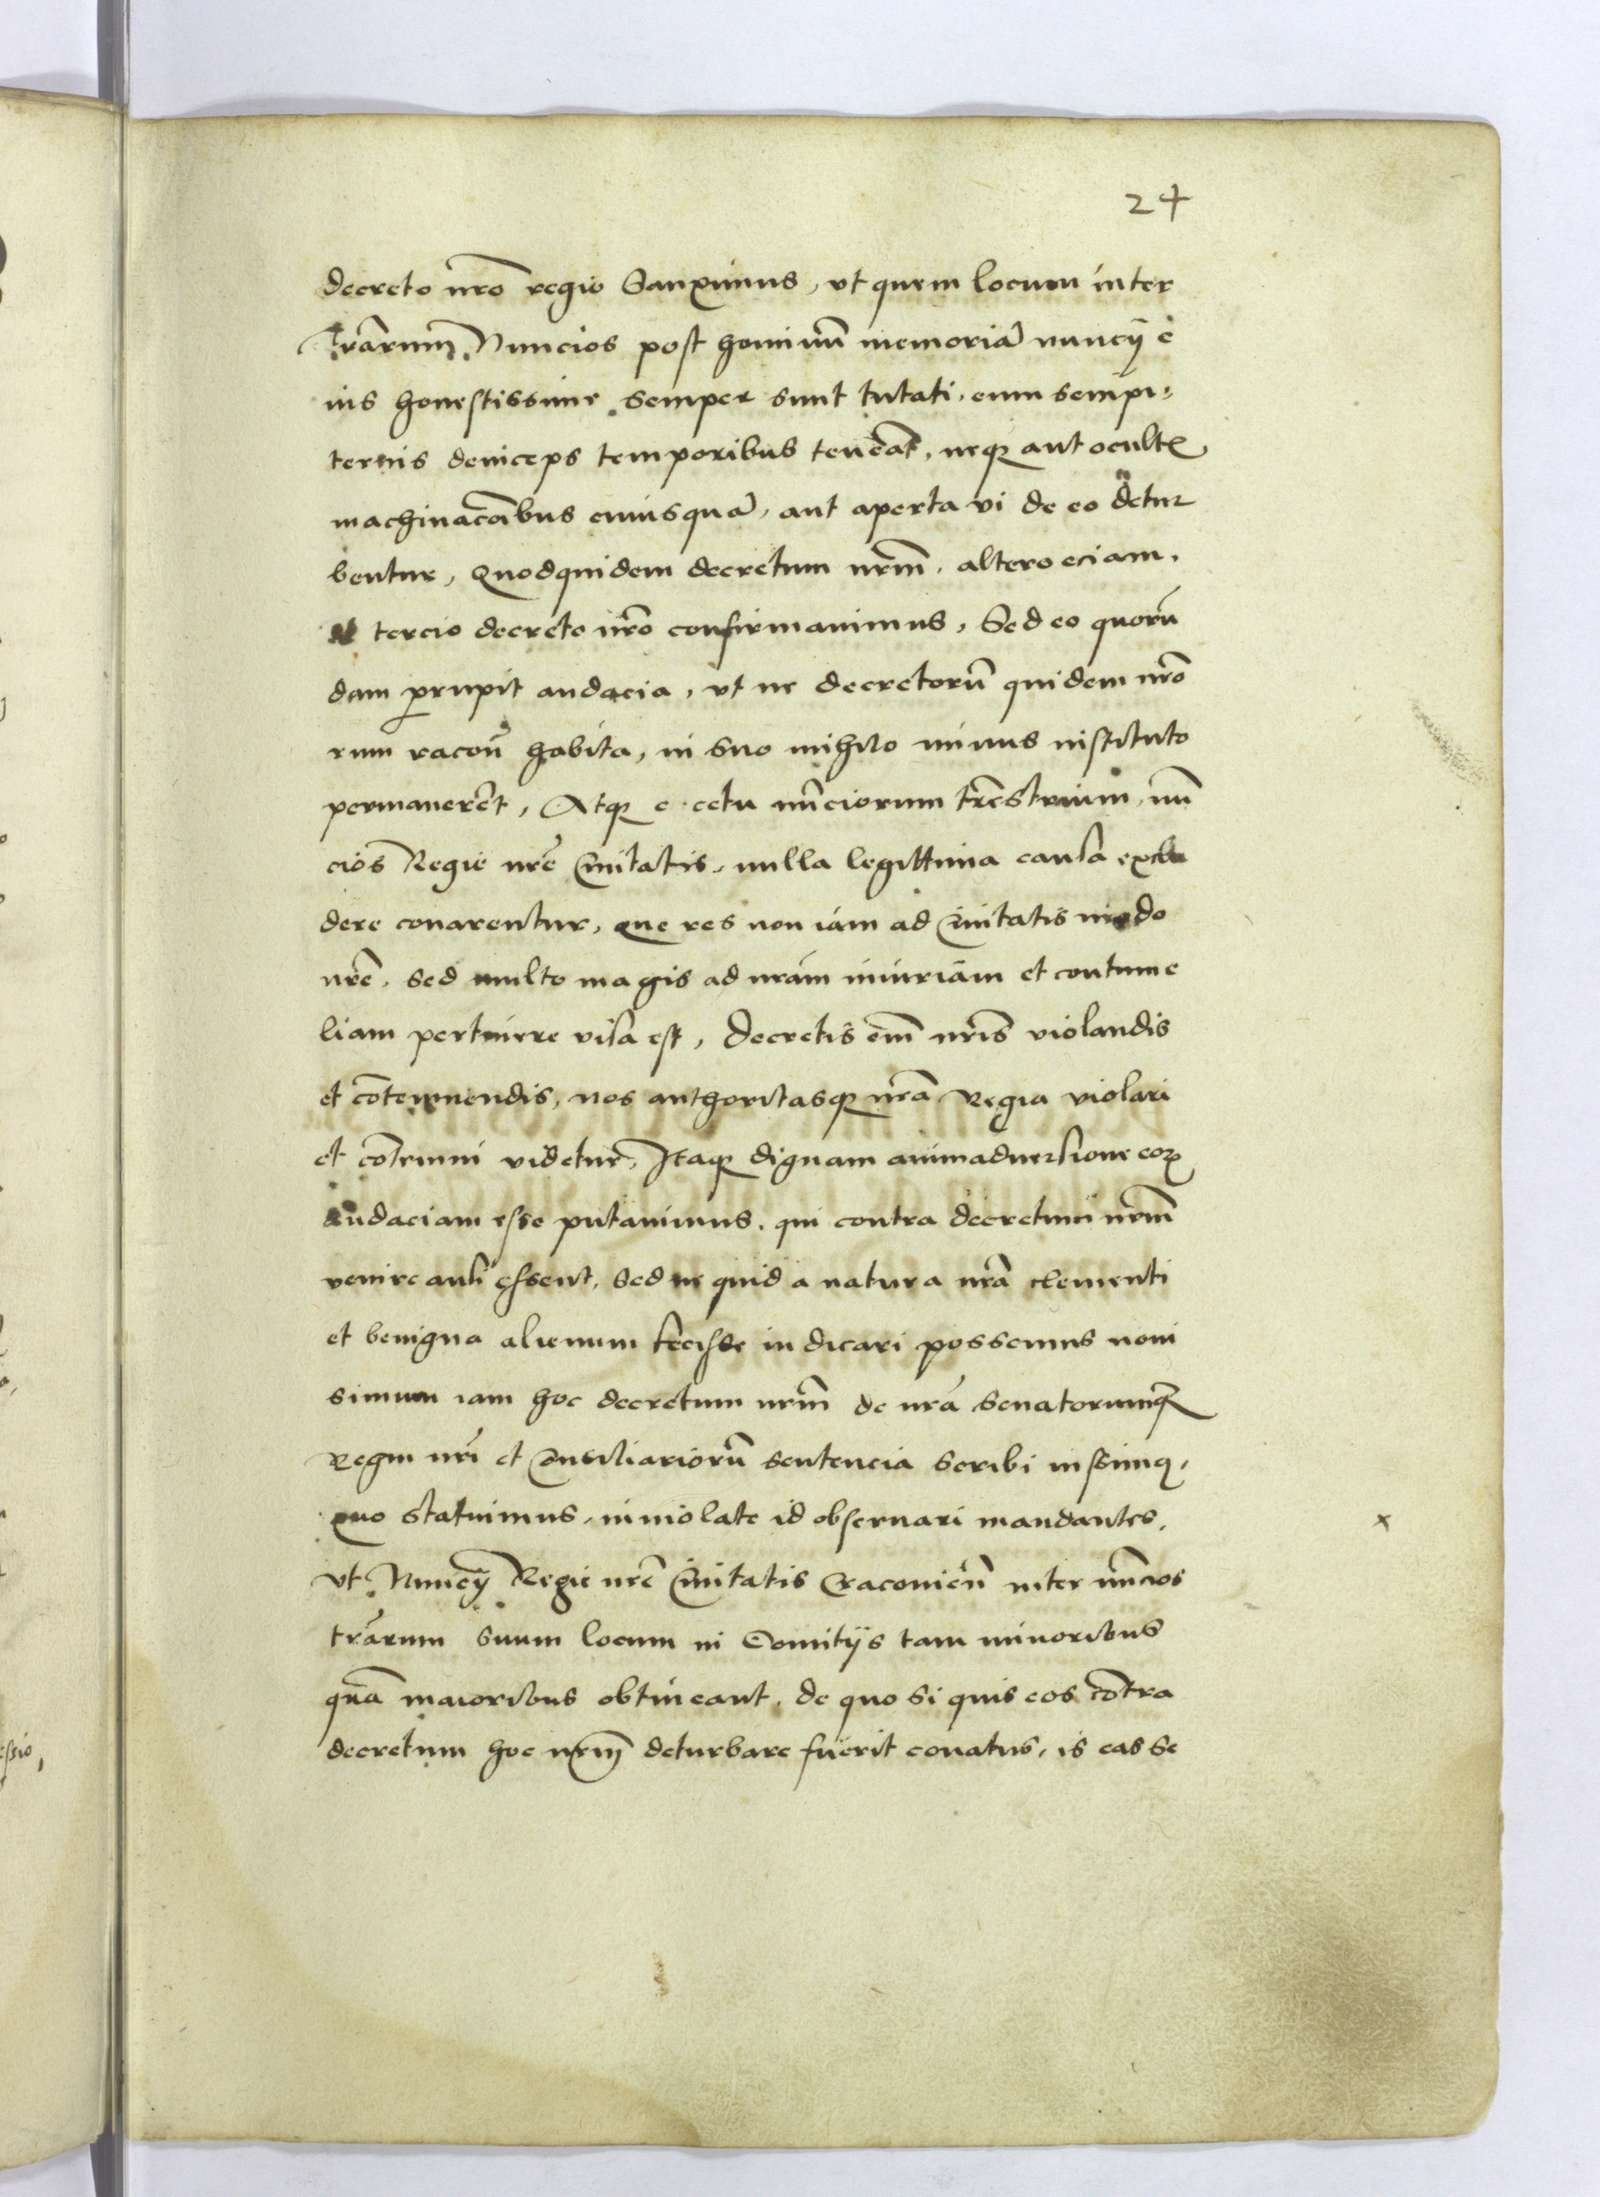 24
decreto nro regio Sanximus, vt quem locum inter
Trarum Nuncios post hominu memoria nuncij e
ius honestissime semper sunt tutati, eum sempi:
ternis deinceps temporibus teneat, neq aut oculte
machinacoibus cuiusqua, aut aperta vi de eo detur
bentur, Quodquidem decretum nrm, altero eciam,
tercio decreto nro confirmauimus, Sed eo quoru
dam prupit audacia, vt ne decretoru quidem nro
rum racon habita, in suo nihilo minus instituto
permaneret, Atq e cetu nuciorum trestrium, nu
cios Regie nre Ciuitatis, nulla legittima causa exclu
dere conarentur, que res non iam ad Ciuitatis modo
nre, sed multo magis ad nram iniuriam et contume
liam pertinere visa est, Decretis em nris violandis
et cotemnendis, nos authoritasq nra Regia violari
et cotemni videtur, Itaq dignam animaduersione eor
audaciam esse putauimus, qui contra decretum nrm
venire ausi essent, Sed ne quid a natura nra clementi
et benigna alienum fecisse iudicari possemus noui
simum iam hoc decretum nrm de nra Senatorumq
Regni nri et Consiliarioru sentencia scribi iussimq,
quo statuimus, inuiolate id obseruari mandantes,
vt Nuncij Regie nre Ciuitatis Cracouien inter nucios
trarum suum locum in Comitijs tam minoribus
qua maioribus obtineant, de quo si quis eos cotra
decretum hoc nrm deturbare fuerit conatus, is eas se
x